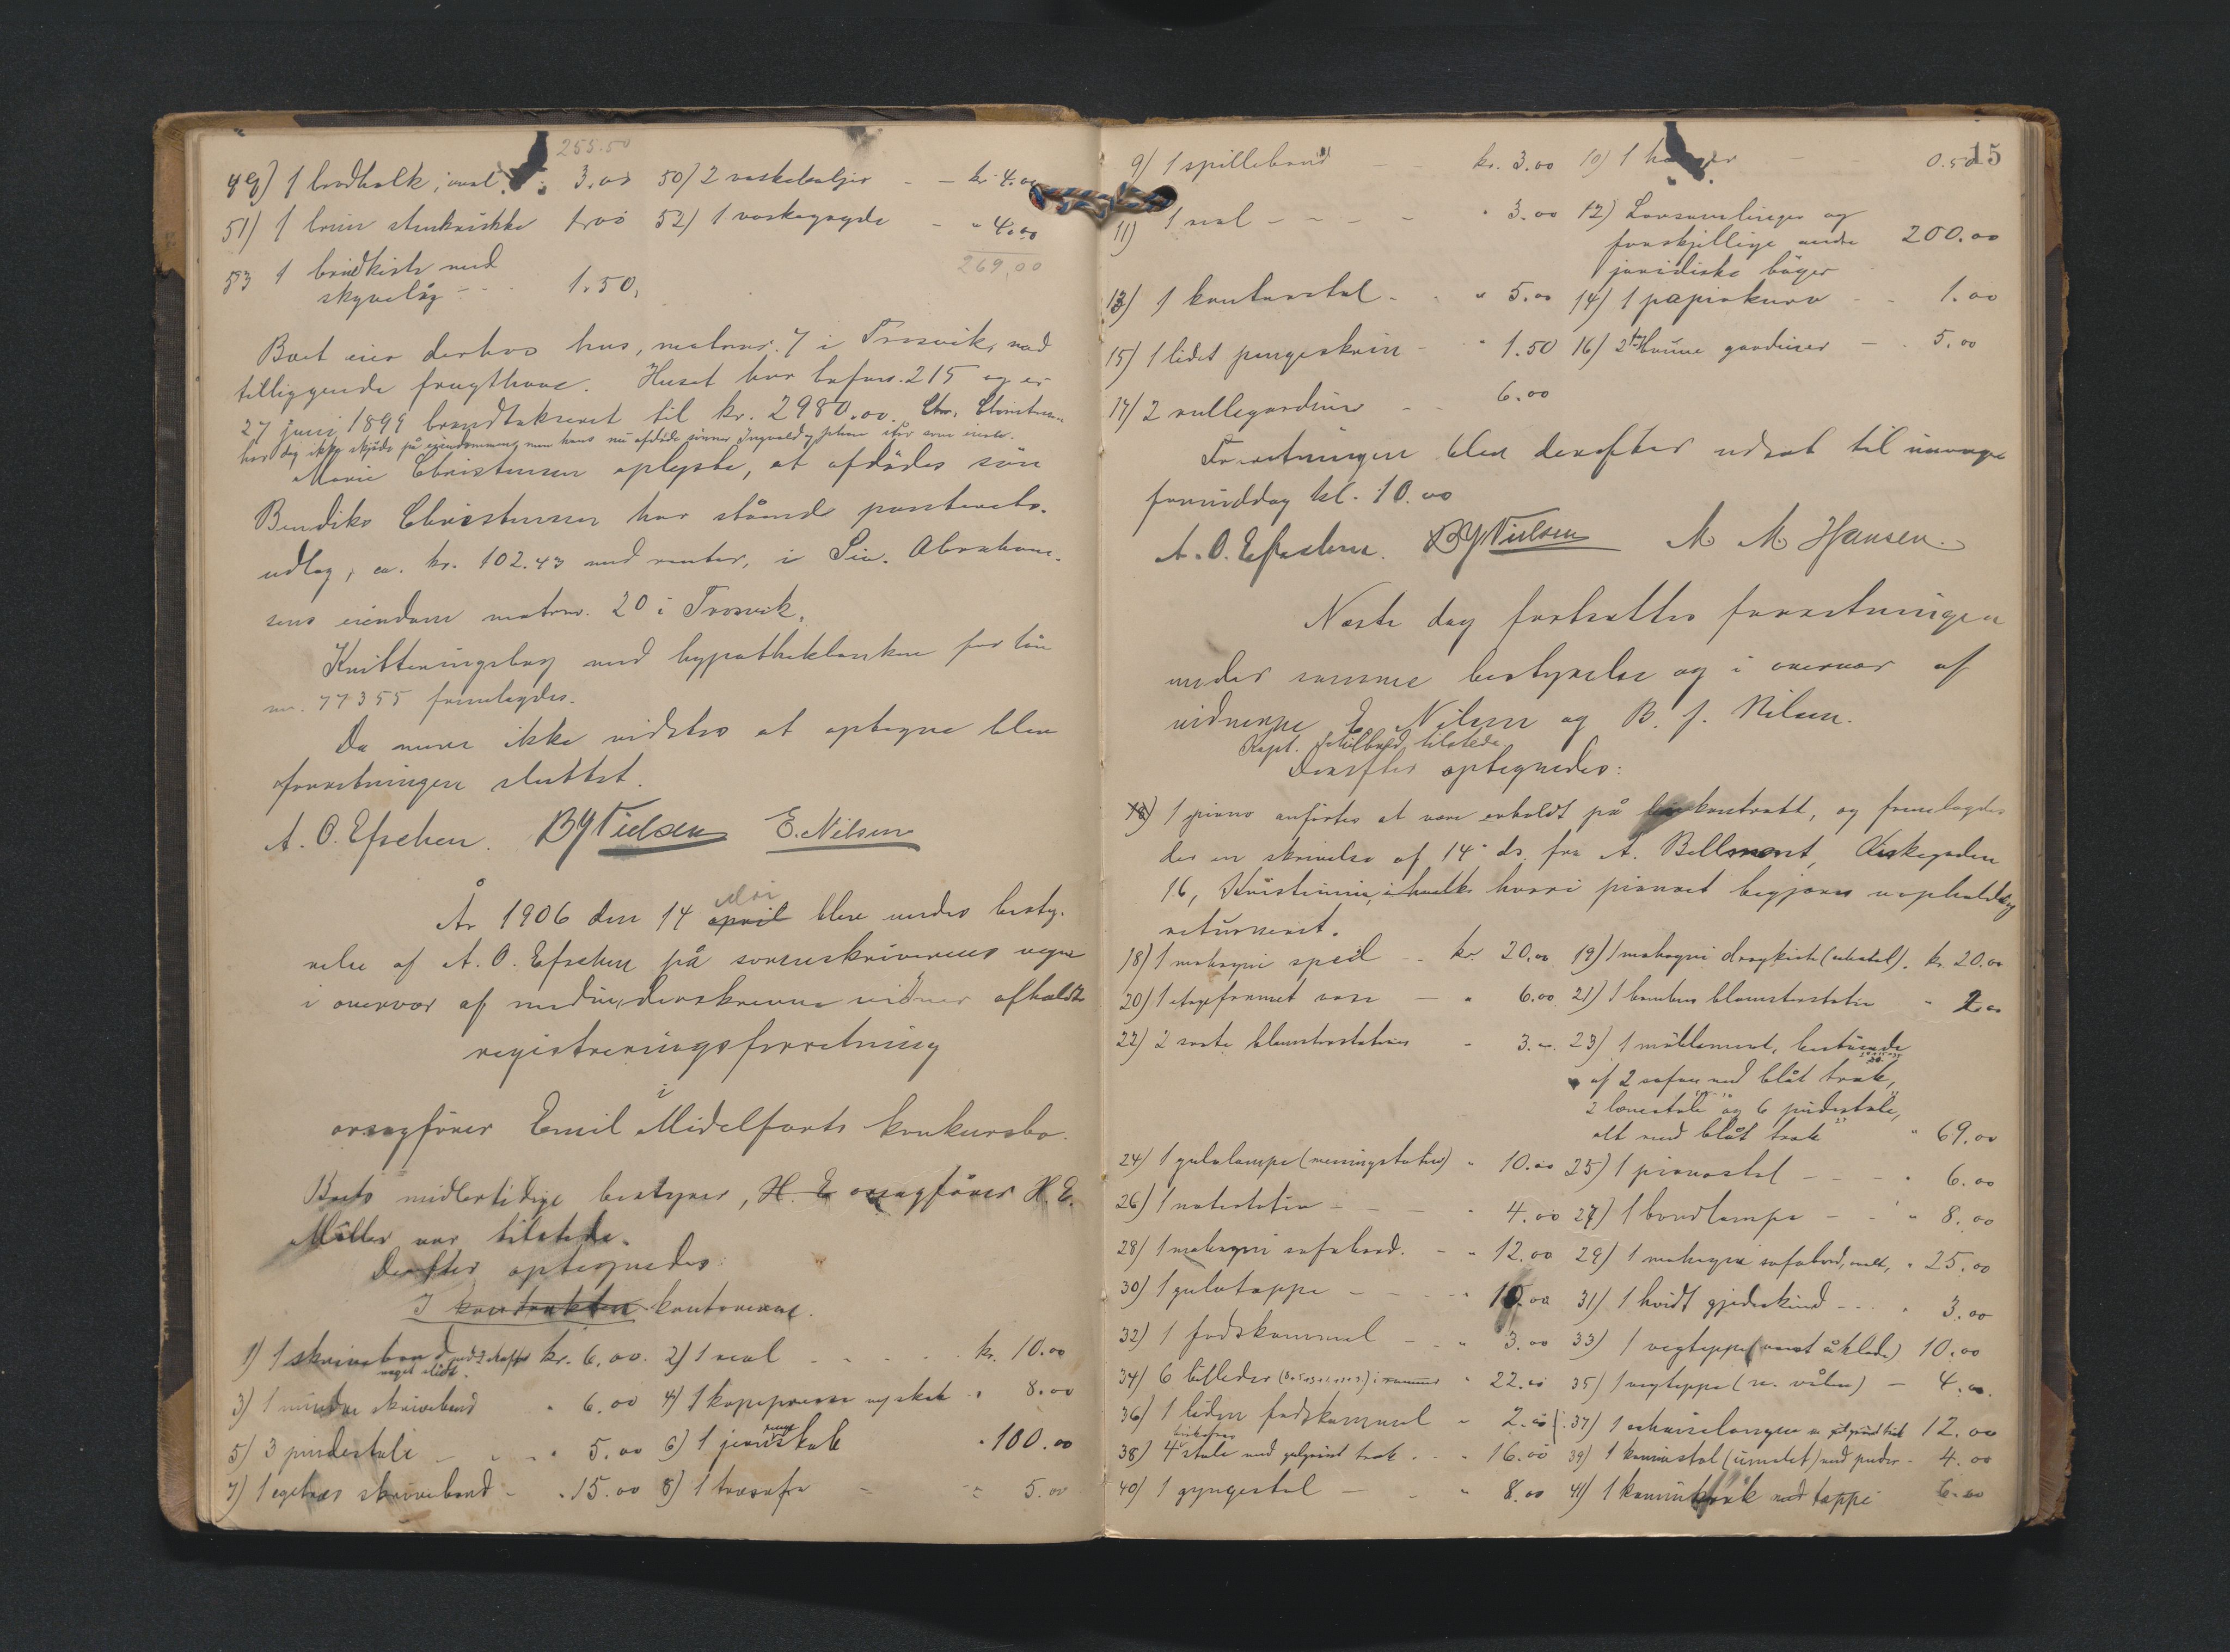 255.50
49) 1 bordbalk, oval 3.00 50) 2 vaskebaljer – – kr. 4.00
51) 1 brun stenkrukke 1.00 52) 1 vaskegryde – " 4.00
53 1 brødkiste med 269,00
skyvelåg – 1.50,
Boet eier derhos hus, matrnr. 7 i Trosvik, med
tilliggende frugthave. Huset har bofnr. 215 og er
27 juni 1899 brandtakseret til kr. 2980.00. Chr. Christensen
har dog ikke skjøde på eiendommen, men hans nu afdøde sønner Ingvald og Johan står som eiere.
Marie Christensen oplyste, at afdødes søn
Bendiks Christensen har stående panterets-
udlæg, ca. kr. 102.43 med renter, i Siv. Abraham-
sens eiendom matrnr. 20 i Trosvik.
Kvitteringsbog med hypothekbanken for lån
nr. 77355 fremlagdes.
Da mere ikke vidstes at optegne blev
forretningen sluttet.
A. O. Efschen. B J Nielsen E. Nilsen
mai
År 1906 den 14 april blev under besty-
relse af A. O. Efschen på sorenskriverens vegne
i overvær af nedenunderskrevne vidner afholdt
registreringsforretning
i
orsagfører Emil Midelfarts konkursbo.
Boets midlertidige bestyrer, H. E orsagfører H. E.
Møller var tilstede.
Derefter optegnedes:
I kontrakten kontorerne.
1) 1 skrivebord med 2 skapper kr. 6.00. 2) 1 reol – – – kr. 10.00
noget slidt.
3) 1 mindre skrivebord " 6.00 4) 1 kopepresse og skab " 8.00
5) 3 pindestole – – " 5.00 6) 1 jernpengeskab " 100.00
7) 1 egetræs skrivebord – " 15.00 8) 1 træsofa – " 5.00
15
9) 1 spillebord – – kr. 3.00 10) 1 – 0.50
11) 1 reol – – – – " 3.00 12) Lovsamlinger og
forskjellige andre 200.00
juridiske bøger
13) 1 kontorstol – " 5.00 14) 1 papirkurv – – 1.00
15) 1 lidet pengeskrin – " 1.50 16) 2 fag brune gardiner – . 5.00
17) 2 rullegardiner – – 6.00
Forretningen blev derefter udsat til imorgen
formiddag kl. 10.00
A. O. Efschen. B J Nielsen M. M. Hansen.
Næste dag fortsattes forretningen
under samme bestyrelse og i overvær af
vidnerne E. Nilsen og B. J. Nilsen.
Kapt. tilstede
Derefter optegnedes:
18) 1 piano anførtes at være erholdt på leiekontrakt, og fremlagdes
der en skrivelse af 14 ds. fra A. Bellment, Kirkegaden
16, Kristiania, i hvilke hvori pianoet begjæres uopholdelig
returneret.
18) 1 mahogni speil – kr. 20.00 19) 1 mahogni dragkiste (chatol). kr. 20.00
20) 1 etageformet vase – " 6.00 21) 1 bambus blomsterstativ " 2.00
22) 2 sorte blomsterstativer – 3.– 23) 1 møblement, bestående
af 2 sofaer med blåt træk,
2 lænestole og 6 pindestole,
alt med blåt træk " 69.00
24) 1 gulvlampe (messingstativ) " 10.00 25) 1 pianostol – – – " 6.00
26) 1 notestativ – – – " 4.00 27) 1 bordlampe – – " 8.00
28) 1 mahogni sofabord. – " 12.00 29) 1 mahogni sofabord, ovalt, " 25.00
30) 1 gulvtæppe – – – – 10.00 31) 1 hvidt gjedeskind – – " 3.00
32) 1 fodskammel – " 3.00 33) 1 vægteppe (vævet åklæde) 10.00
34) 6 billeder i rammer " 22.00 35) 1 vægteppe – 4.00.
36) 1 liden fodskammel " 2.00 37) 1 chaiselongue m. gulgrønt træk 12.00
38) 4 stole med gulgrønt træk . " 16.00 39) 1 kurvestol (umalet) med puder – 4.00
40) 1 gyngestol – – " 8.00 41) 1 kamin med tæppe 6.00